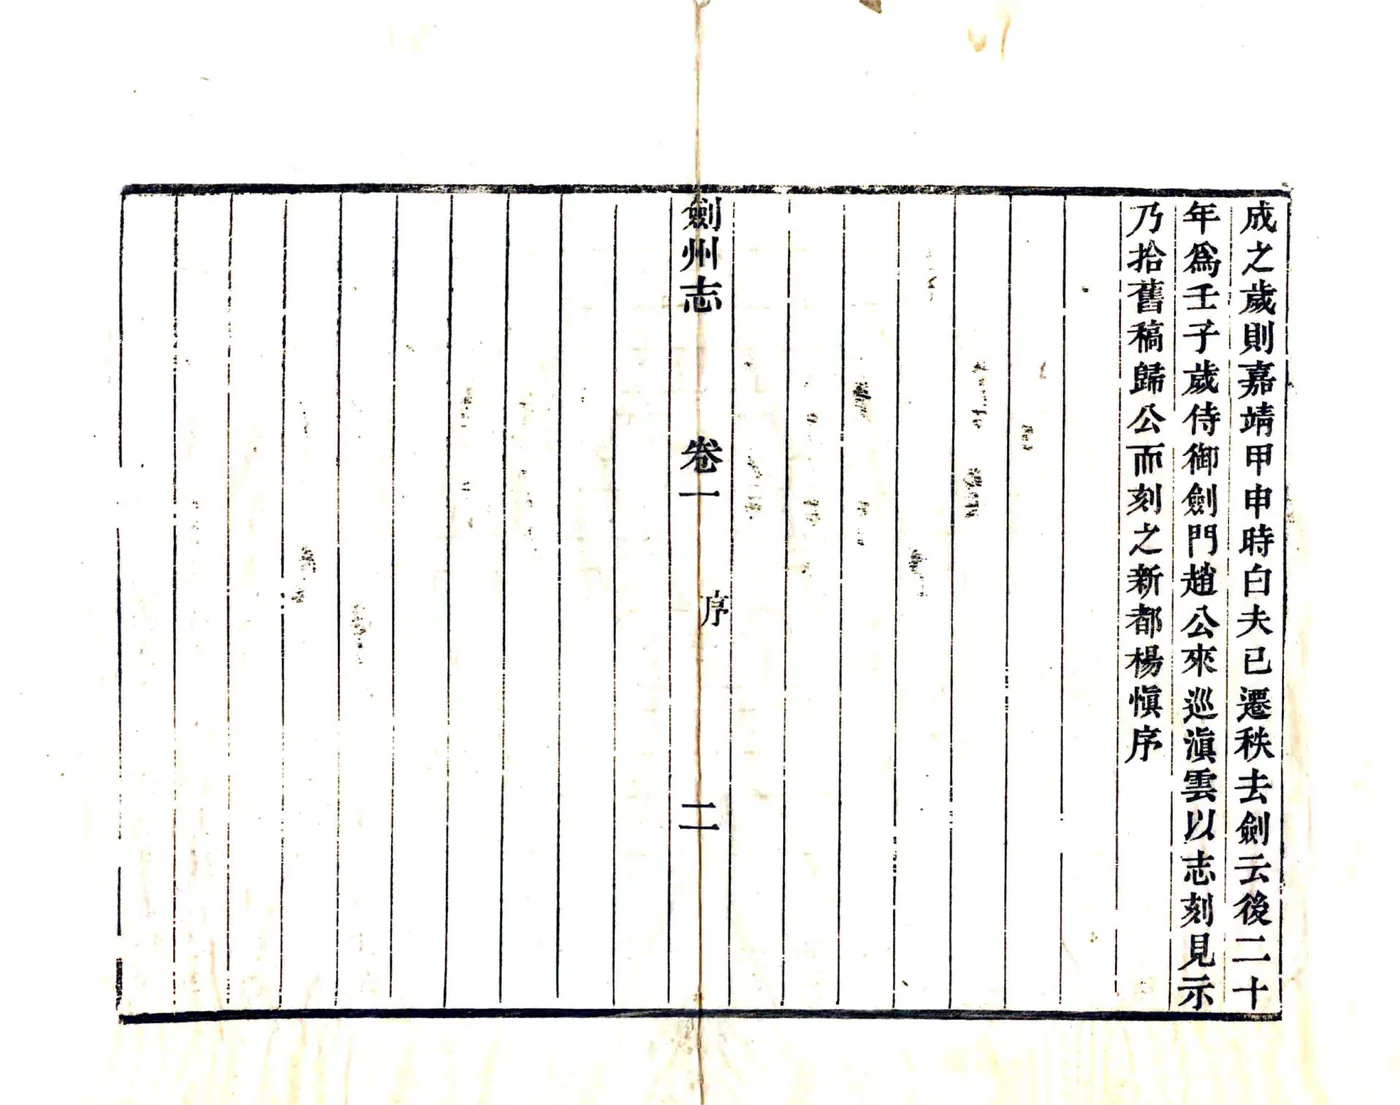 成之歲則嘉靖甲申時白夫已遷秩去劍云後二十
年爲壬子歲侍御劍門趙公來巡滇雲以志刻見示
乃拾舊稿歸公而刻之新都楊愼序
劍州志 卷一 序 二